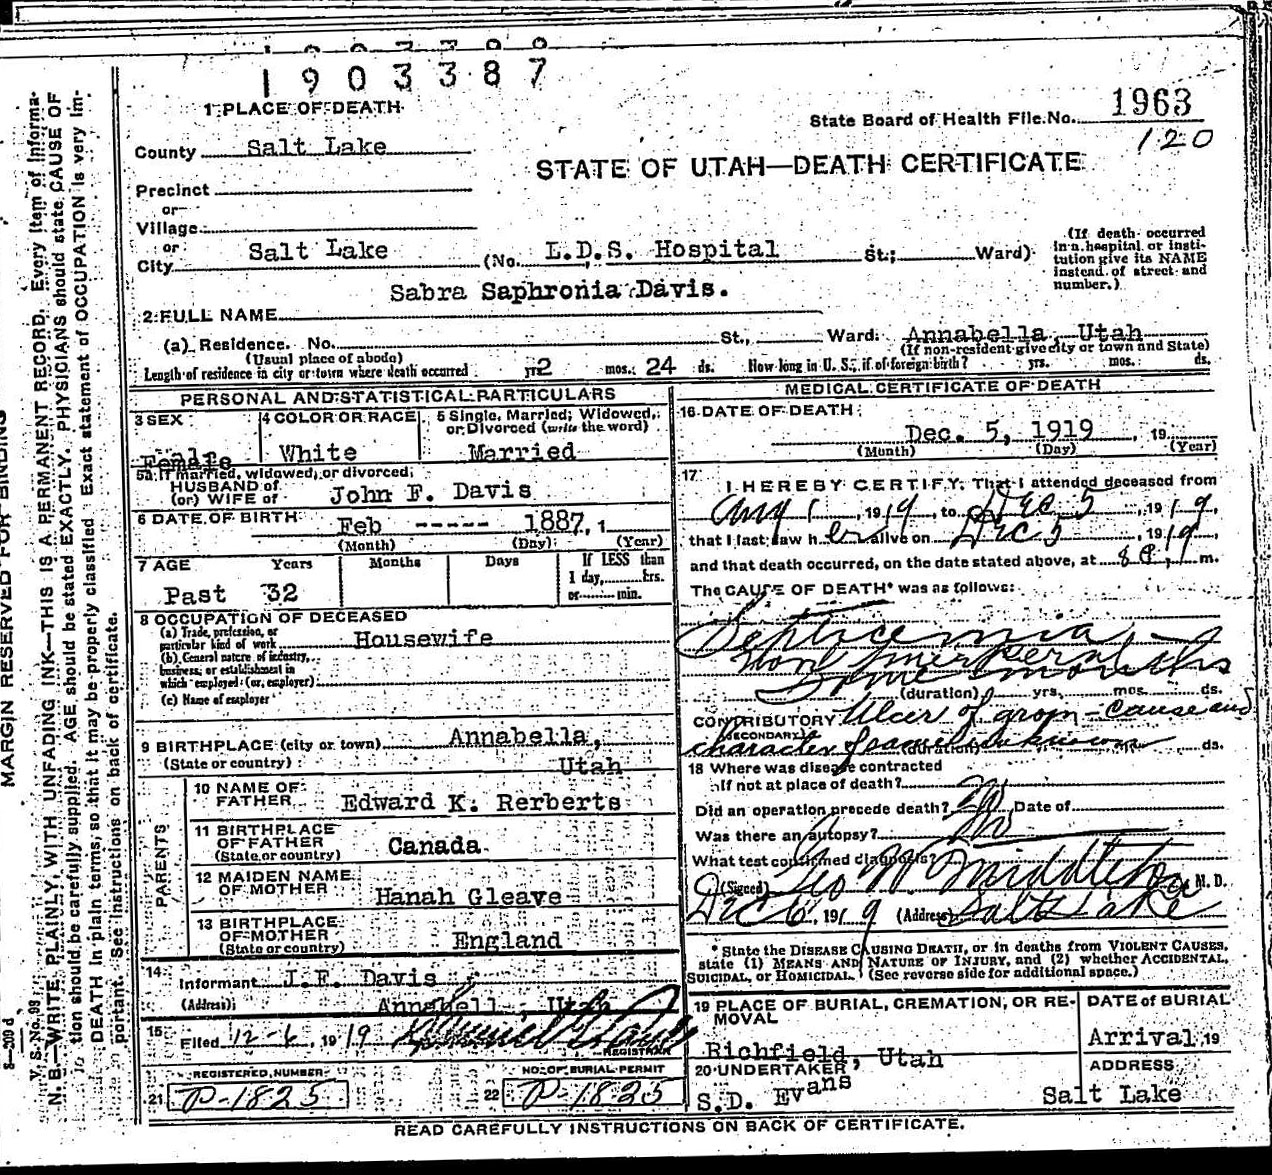 1903387
1 PLACE OF DEATH
State Board of Health File No. 1963
120
County Salt Lake
STATE OF UTAH—DEATH CERTIFICATE
Precinct
or
Village
or
City Salt Lake (No. L.D.S. Hospital St.; Ward)
(If death occurred in a hospital or institution give its NAME instead of street and number.)
2 FULL NAME Sabra Saphronia Davis.
(a) Residence. No. St., Ward. Annabella, Utah
(Usual place of abode) (If non-resident give city or town and State)
Length of residence in city or town where death occurred yrs. 2 mos. 24 ds. How long in U. S., if of foreign birth? yrs. mos. ds.
PERSONAL AND STATISTICAL PARTICULARS
3 SEX Female
4 COLOR OR RACE White
5 Single, Married, Widowed, or Divorced (write the word) Married
5a If married, widowed, or divorced,
HUSBAND of
(or) WIFE of John F. Davis
6 DATE OF BIRTH Feb ----- 1887, 1
(Month) (Day) (Year)
7 AGE Years Months Days If LESS than
1 day, hrs.
or min.
Past 32
8 OCCUPATION OF DECEASED
(a) Trade, profession, or
particular kind of work Housewife
(b) General nature of industry,
business, or establishment in
which employed (or employer)
(c) Name of employer
9 BIRTHPLACE (city or town) Annabella,
(State or country) Utah
PARENTS
10 NAME OF
FATHER Edward K. Rerberts
11 BIRTHPLACE
OF FATHER Canada
(State or country)
12 MAIDEN NAME
OF MOTHER Hanah Gleave
13 BIRTHPLACE
OF MOTHER England
(State or country)
14
Informant J.F. Davis
(Address) Annabell, Utah
15
Filed 12-6, 1919
REGISTRAR
REGISTERED NUMBER
21 P-1825
NO. OF BURIAL PERMIT
22 P-1825
MEDICAL CERTIFICATE OF DEATH
16 DATE OF DEATH
Dec. 5, 1919, 19
(Month) (Day) (Year)
17
I HEREBY CERTIFY, That I attended deceased from
Aug 1, 1919, to Dec 5, 1919,
that I last saw her alive on Dec 5, 1919,
and that death occurred, on the date stated above, at 8 m.
The CAUSE OF DEATH* was as follows:
Septicemia -
non puerperal
Some months
(duration) yrs. mos. ds.
CONTRIBUTORY Ulcer of groin - cause and
(SECONDARY)
character of same unknown ds.
18 Where was disease contracted
if not at place of death?
Did an operation precede death? No Date of
Was there an autopsy? No
What test confirmed diagnosis?
(Signed) Geo W Middleton M.D.
Dec 6, 1919 (Address) Salt Lake
* State the DISEASE CAUSING DEATH, or in deaths from VIOLENT CAUSES,
state (1) MEANS AND NATURE OF INJURY, and (2) whether ACCIDENTAL,
SUICIDAL, or HOMICIDAL. (See reverse side for additional space.)
19 PLACE OF BURIAL, CREMATION, OR REMOVAL
Richfield, Utah
DATE of BURIAL
Arrival, 19
20 UNDERTAKER
S.D. Evans
ADDRESS
Salt Lake
READ CAREFULLY INSTRUCTIONS ON BACK OF CERTIFICATE.
MARGIN RESERVED FOR BINDING
V. S. No. 99
N. B.—WRITE PLAINLY, WITH UNFADING INK—THIS IS A PERMANENT RECORD. Every item of information
should be carefully supplied. AGE should be stated EXACTLY. PHYSICIANS should state CAUSE OF
DEATH in plain terms, so that it may be properly classified. Exact statement of OCCUPATION is very important.
See instructions on back of certificate.